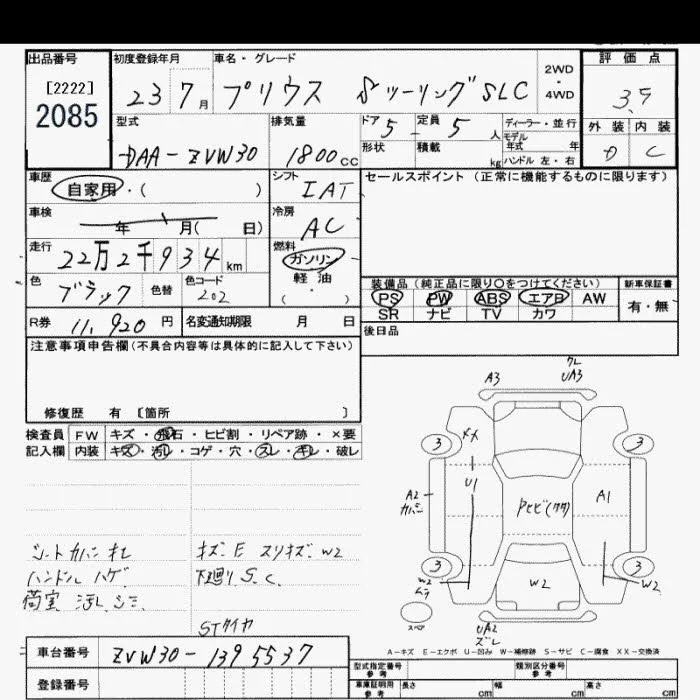 出品番号
[2222]
2085
初度登録年月
23 7月
車名・グレード
プリウス SツーリングSLC
2WD
・
4WD
評価点
3.5
外装 内装
D C
型式
DAA-ZVW30
排気量
1800cc
ドア 5
定員 5人
形状
積載 kg
ディーラー・並行
モデル年式 年
ハンドル 左・右
車歴
自家用・( )
シフト
IAT
セールスポイント(正常に機能するものに限ります)
車検
年 月( 日)
冷房
AC
走行
22万2千934km
燃料
ガソリン
軽油
・( )
色
ブラック
色替
色コード
202
装備品(純正品に限り○をつけてください)
PS PW ABS エアB AW
SR ナビ TV カワ
新車保証書
有・無
R券 11,920円
名変通知期限 月 日
後日品
注意事項申告欄(不具合内容等は具体的に記入して下さい)
修復歴 有 [箇所 ]
検査員記入欄
FW キズ・飛石・ヒビ割・リペア跡・×要
内装 キズ・汚レ・コゲ・穴・スレ・キレ・破レ
シートカバー
ハンドルハゲ
荷室 汚レ シミ
キズ E スリキズ W2
下廻りS.C.
STタイヤ
A3
UA3
3
3
U1
A2
カバー
A1
3
3
W2
W2
W2
スペア
UA2
ズレ
A-キズ E-エクボ U-凹み W-補修跡 S-サビ C-腐食 XX-交換済
車台番号 ZVW30-1395537
登録番号
型式指定番号
参考
類別区分番号
参考
車庫証明用
参考
長さ cm
幅 cm
高さ cm